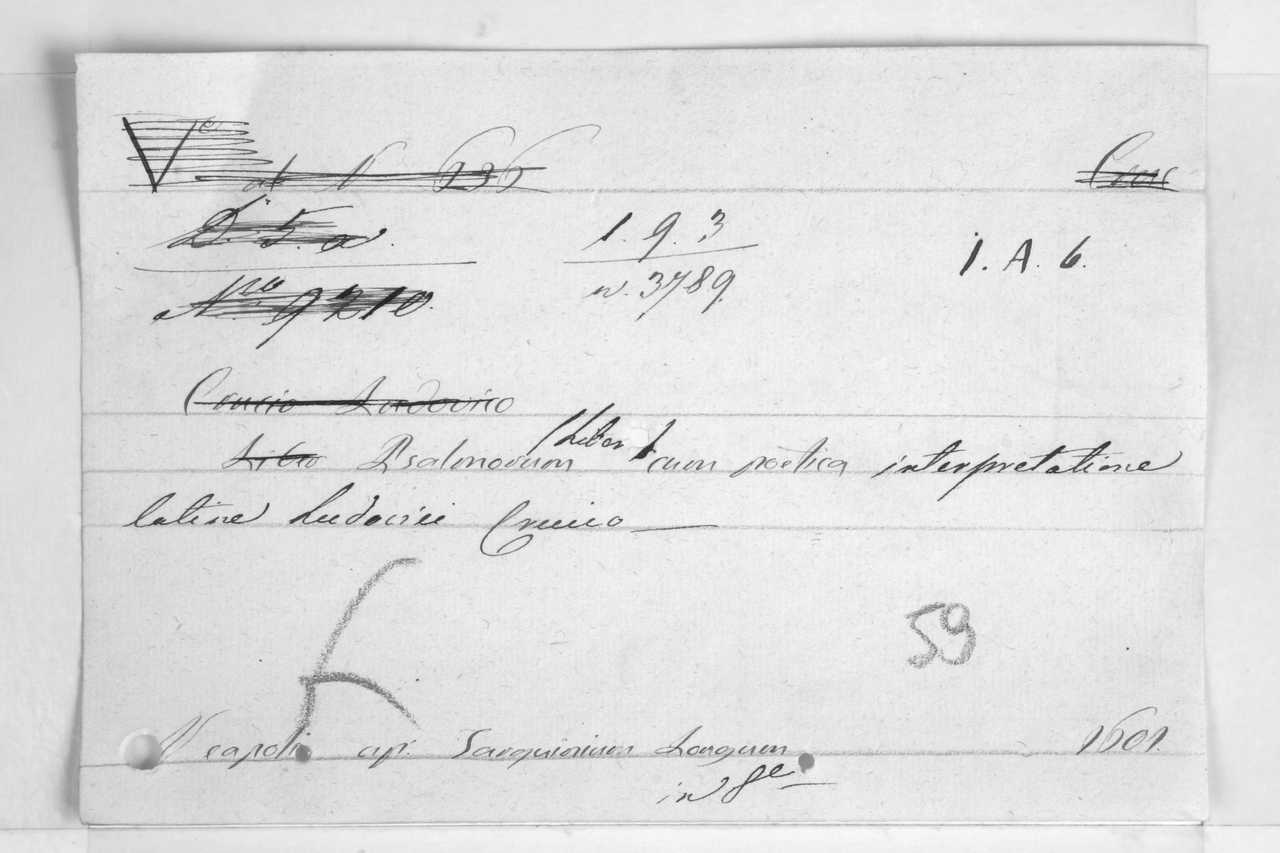 Ve
al N 636
Croc
D. 5. a.
1. 9. 3
I. A. 6.
Nro 9210.
n. 3789.
Crucio Ludovico
Libro Psalmorum (Liber) cum poetica interpretatione
latine Ludovici Crucio
59
Neapoli ap. Tarquinium Longum
1601
in 8e